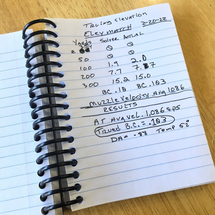 Truing Elevation
Elev match 3-20-22
Yards Solver Actual
50 0 0
100 1.9 2.0
200 7.7 7.7
300 15.2 15.0
BC .18 BC .183
Muzzle Velocity Avg 1,086
RESULTS
AT Avg Vel. 1,086 FPS
Trued B.C. = .183
DA = .88 Temp 55°